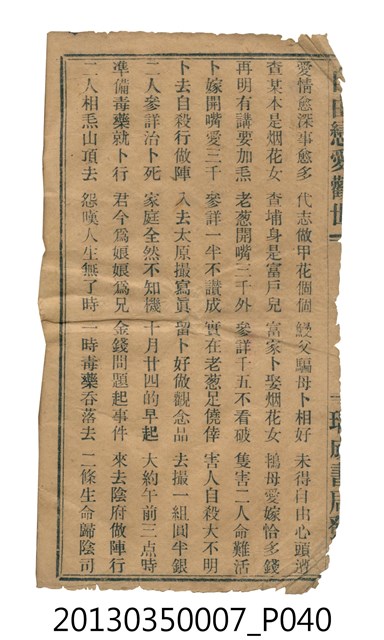 自由戀愛勸世
瑞成書局發
愛情愈深事愈多 代志做甲花個個 繆父騙母卜相好 未得自由心頭
查某本是烟花女 查埔身是富戶兒 富家卜娶烟花女 鴇母愛嫁恰多錢
再明有講要加炁 老葱開嘴三千外 參詳千五不看破 隻害二人命難活
卜嫁開嘴愛三千 參詳一半不讚成 實在老葱足僥倖 害人自殺大不明
卜去自殺行做陣 入去太原撮寫眞 留卜好做觀念品 去撮一組圓半銀
二人參詳治卜死 家庭全然不知機 十月廿四的早起 大約午前三点時
準備毒藥就卜行 君今爲娘娘爲兄 金錢問題起事件 來去陰府做陣行
二人相炁山頂去 怨嘆人生無了時 一時毒藥吞落去 二條生命歸陰司
20130350007_P040